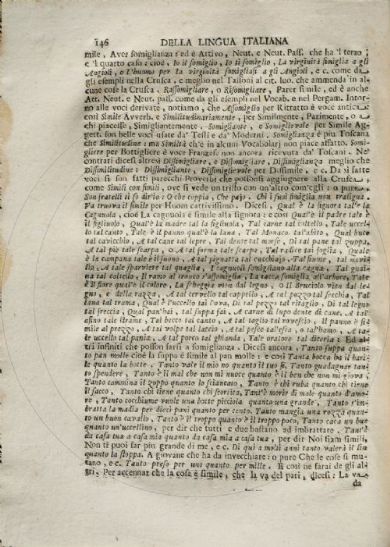 146 DELLA LINGUA ITALIANA
mile, Aver somiglianza; ed è Attivo, Neut. e Neut. Pass. che ha 'l terzo
e 'l quarto caso: cioè, Io ti somiglio, Io ti somiglio, La virginità simiglia a gli
Angioli, e L'huomo per la virginità somigliasi a gli Angioli, e c. come da
gli esempli nella Crusca, e meglio nel Tassoni al cit. luo. che ammenda in al-
cune cose la Crusca. Rassomigliare, o Risomigliare, Parer simile, ed è anche
Att. Neut. e Neut. pass. come da gli esempli nel Vocab. e nel Pergam. Intor-
no alle voci derivate, notiamo, che per Ritratto è voce antica:
così Simile Avverb. e Similitudinariamente, per Similmente, Parimente, o a
chi piacesse, Simigliantemente; Simigliante, e Somiglievole per Simile Ag-
gett. son belle voci usate da' Testi e da' Moderni. Simiglianza è più Toscana
che Similitudine; ma Simità che è in alcuni Vocabolarj non piace affatto. Somi-
gliere per Bottigliere è voce Franzese non ancora ricevuta da' Toscani. Ne'
contrarj dicesi altresì Dissimigliare, e Dissomigliare, Dissimiglianza meglio che
Dissimilitudine: Dissimigliante, Dissimiglievole per Dissimile, e c. Da sì fatte
voci si son fatti parecchi Proverbj che possonsi aggiungere alla Crusca:
come Simili con simili, ove si vede un tristo con un'altro com'egli: o pure
Son fratelli il sì dirìa: O che coppia, Che pajo. Chi i suoi non simiglia non traligna.
Va truova il simile per Huom cattivissimo. Dicesi, Qual'è la signora tal'è la
Cagnuola, cioè La cagnuola è simile alla signora: e così Qual'è il padre tale è
il figliuolo, Qual'è la madre tal'è la figliuola, Tal carne tal coltello, Tale uccel-
lo tal canto, Tale è il panno qual'è la lana, Tal Monaco tal'abito, Qual buco
tal cavicchio, A tal cane tal lepre, Tai dente tai morsi, Di tal pane tal zuppa,
A tal piè tale scarpa, o A tal forma tale scarpa, Tal radice tai foglia, Quale
è la campana tale è il suono, A tal pignatta tal cucchiajo, Tal fiume, tal mari-
na, A tale sparviere tal quaglia, I cagnuoli somigliano alla cagna, Tal gua-
na tal coltello, La ramo somiglia all'arbore, Tale
è il fiore qual'è il colore, La scheggia vien dal legno, o Il Bruciolo vien dal le-
gno, e dalla razza, A tal cervello tal cappello, A tal pozzo tal secchia, Tal
lana tal trama, Qual'è l'uccello tal l'ova, Di tal pezzo tal ritaglio, Di tal legno
tal freccia, Qual pan'hai, tal suppa fai, A carne di lupo dente di cane, A tal'
asino tale strame, Tal bocca tal canto, A tal taglio tal rovescio, Il panno è si-
mile al prezzo, A tal volpe tal laccio, A tal pesce tal'esca, o tal'hamo, A ta-
le uccello tal pania, A tal porco tal ghianda, Tale oratore tal diceria: Ed al-
tri infiniti che posson farsi a somiglianza. Dicesi ancora, Tanto suppa quanto
pan molle cioè la suppa è simile al pan molle: e così Tanta bocca ha il bari-
le quanto la botte, Tanto vale il mio no quanto il tuo sì, Tanto guadagnar tan-
to spendere, Tanto è che non mi nuoce quanto è il ben che non mi giova:
Tanto cammina il zoppo quanto lo sciancato, Tanto è chi ruba quanto chi tiene
il sacco, Tant'è morto di male quanto d'amo-
re, Tanto cocchiume vuole una botte piccola quanto una grande, Tanto s'im-
bratta la madia per dieci pani quanto per cento, Tanto mangia una rozza quan-
to un buon cavallo, Tanto è il troppo quanto è il troppo poco, Tanto caca un bue
quanto un'uccellino, per dir che tutti e due bastano ad imbrattare. Tant'è
da casa tua a casa mia quanto da casa mia a casa tua, per dir Noi siam simili,
Non ti puoi far più grande di me, e c. Di qui a molti anni tanto valerà il lin
quanto la stoppa. A giovane che ha da invecchiare: o pure Che le cose si mu-
tano, e c. Tanto preso per uno quanto per mille. E così ne farai de gli al-
tri. Per accennar che la cosa è simile, che la va del pari, dicesi: La va
da